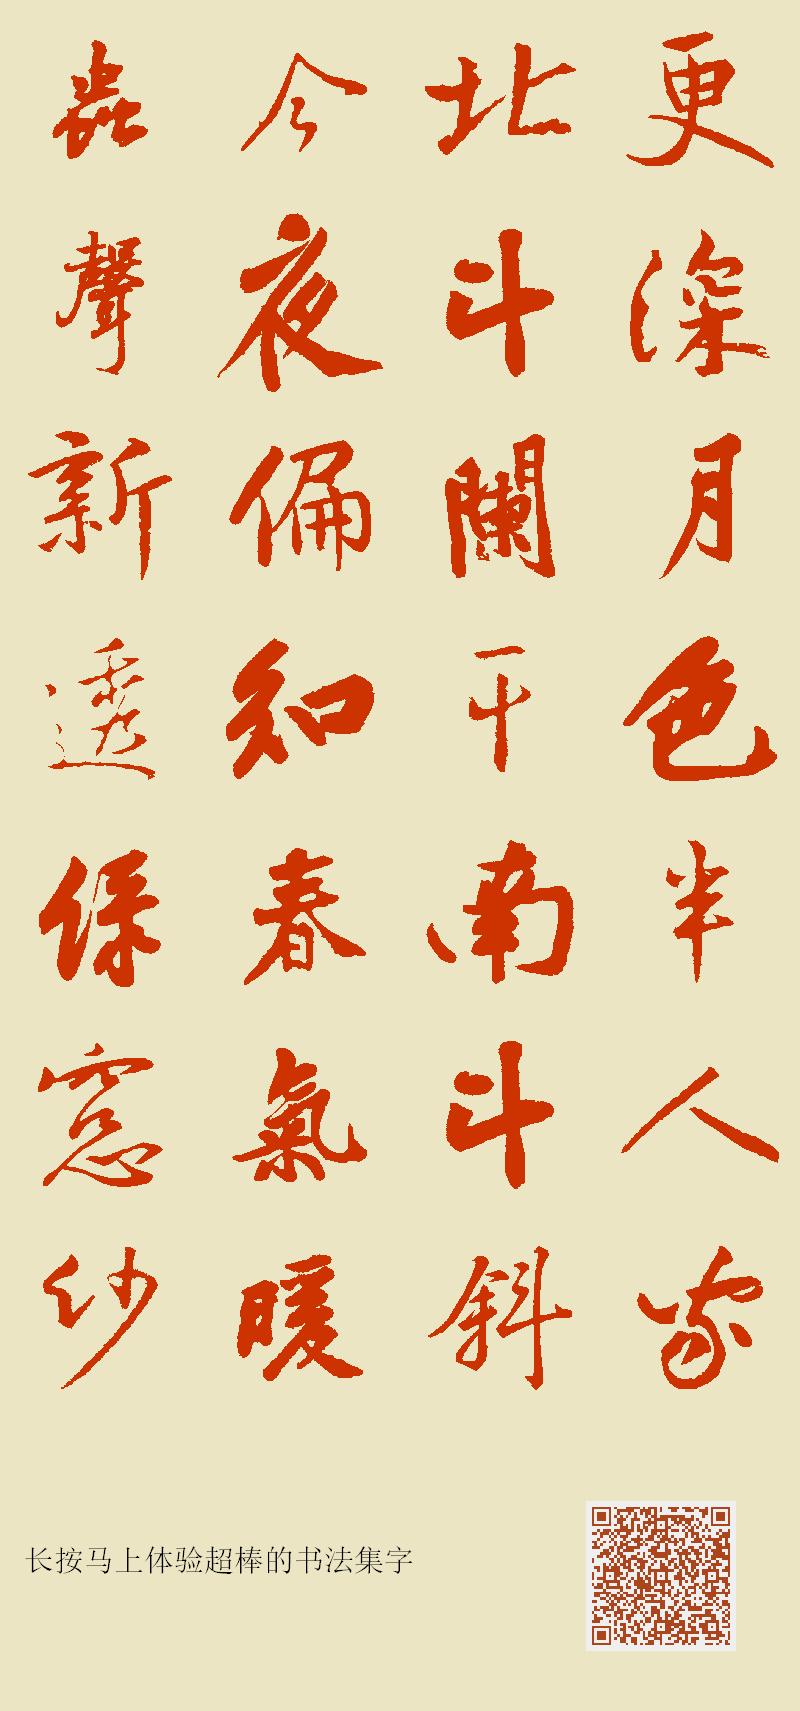 更深月色半人家
北斗闌干南斗斜
今夜偏知春氣暖
蟲聲新透绿窓纱
长按马上体验超棒的书法集字